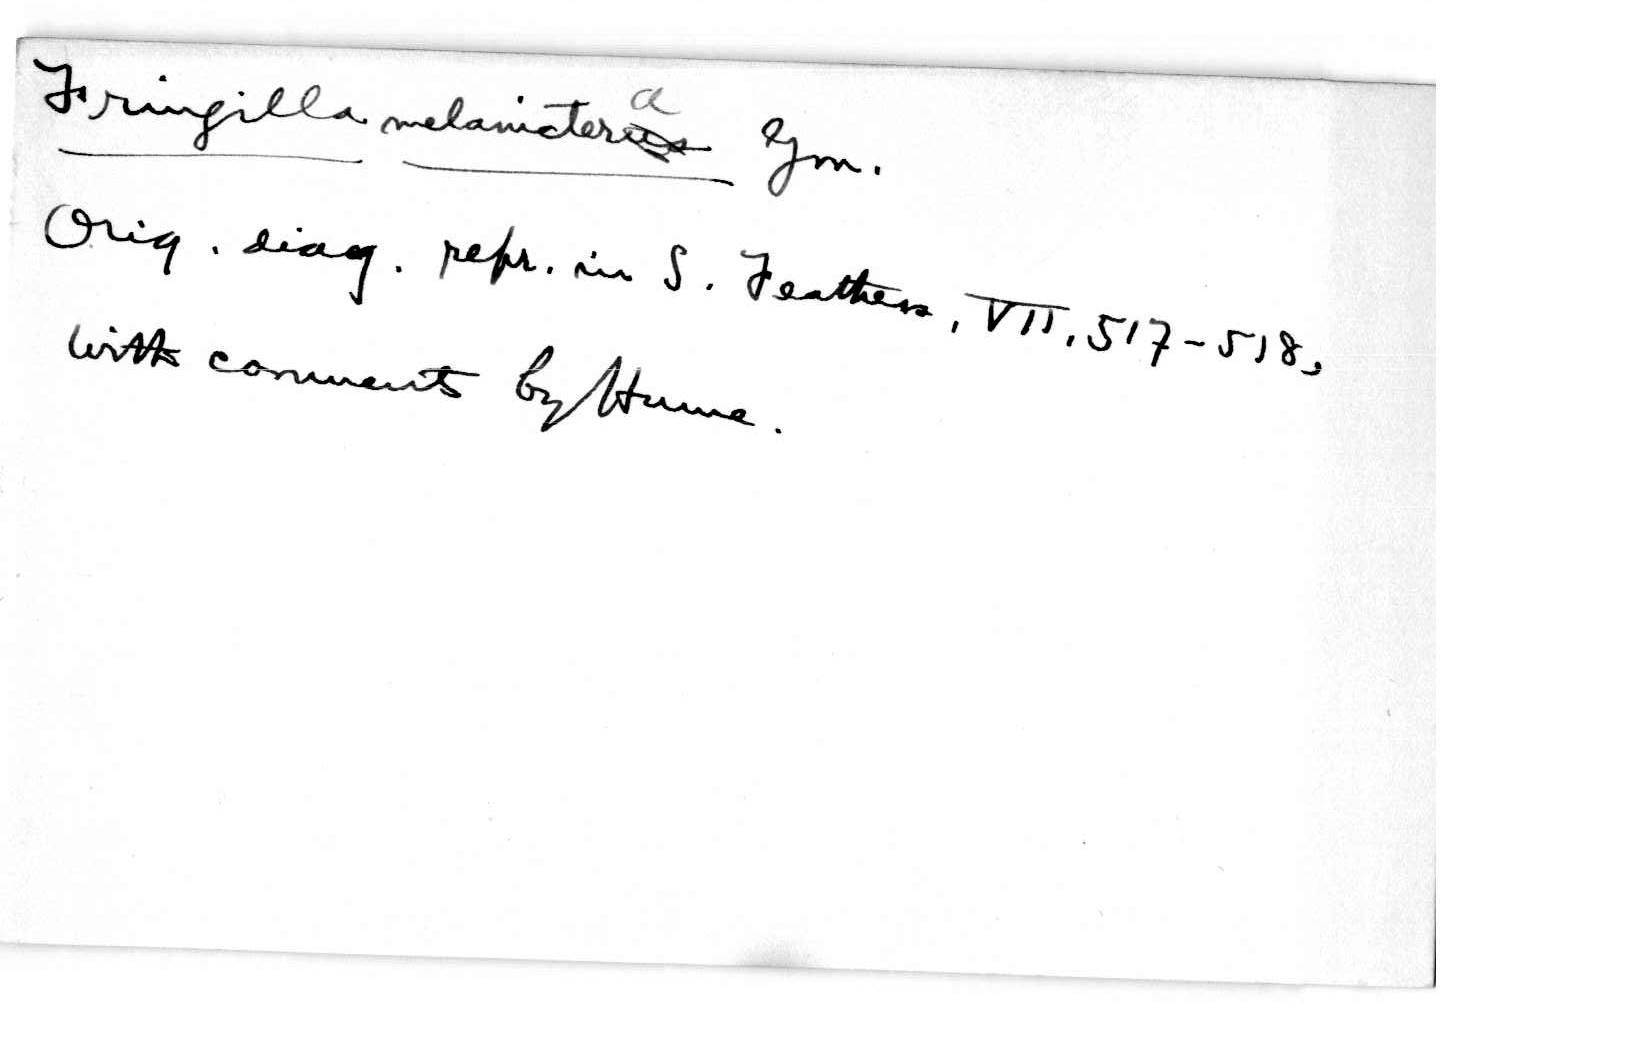 Fringilla melanictera Gm.
Orig. diag. repr. in S. Feathers, VII, 517-518,
with comments by Hume.